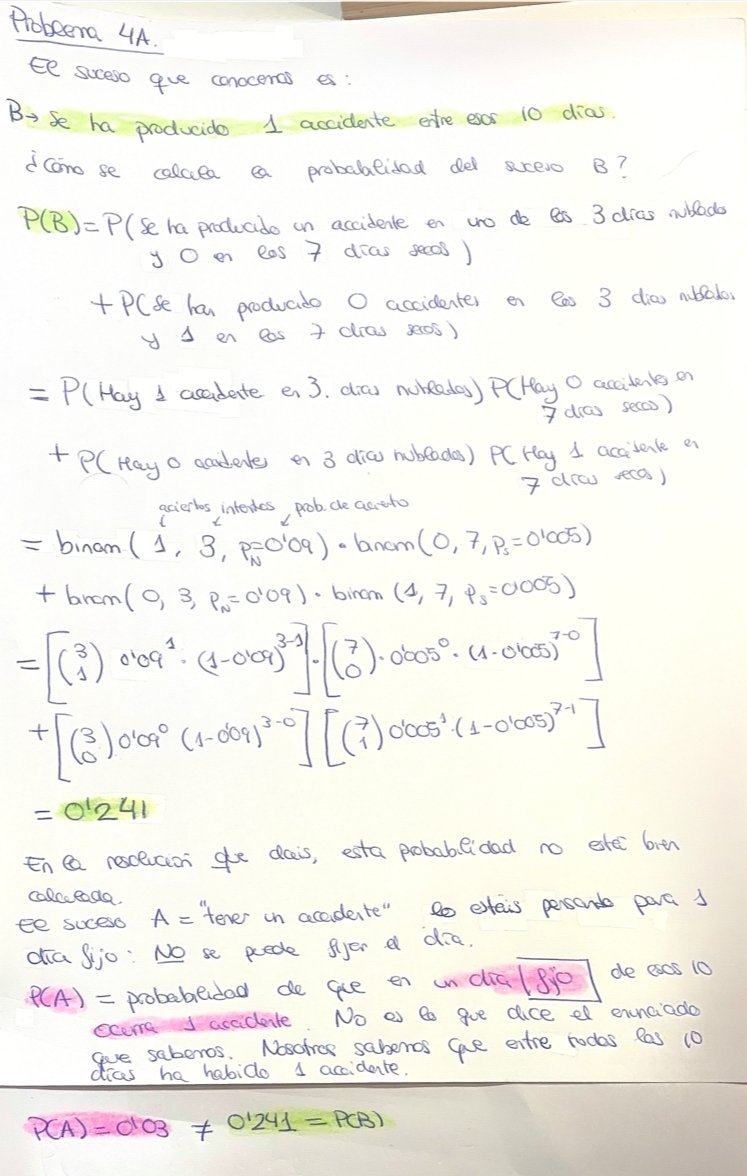 Problema 4A.
El suceso que conocemos es:
B→ Se ha producido 1 accidente entre esos 10 días.
¿Cómo se calcula la probabilidad del suceso B?
P(B)=P(Se ha producido un accidente en uno de los 3 días nublados
y 0 en los 7 días secos)
+P(Se han producido 0 accidentes en los 3 días nublados
y 1 en los 7 días secos)
= P(Hay 1 accidente en 3. días nublados) P(Hay 0 accidentes en
7 días secos)
+ P(Hay 0 accidentes en 3 días nublados) P(Hay 1 accidente en
7 días secos)
aciertos intentos prob. de acierto
= binom(1, 3, p_N=0'09) · binom(0, 7, p_s=0'005)
+ binom(0, 3, p_N=0'09) · binom(1, 7, p_s=0'005)
=[(3 1) 0'09^1 · (1-0'09)^3-1]·[(7 0)·0'005^0 · (1-0'005)^7-0]
+[(3 0) 0'09^0 (1-0'09)^3-0] [(7 1) 0'005^1·(1-0'005)^7-1]
= 0'241
En la resolución que dais, esta probabilidad no está bien
calculada.
El suceso A = "tener un accidente" lo estáis pensando para 1
día fijo: NO se puede fijar el día.
P(A) = probabilidad de que en un día fijo de esos 10
ocurra 1 accidente. No es lo que dice el enunciado
que sabemos. Nosotros sabemos que entre todos los 10
días ha habido 1 accidente.
P(A)=0'03 ≠ 0'241 = P(B)